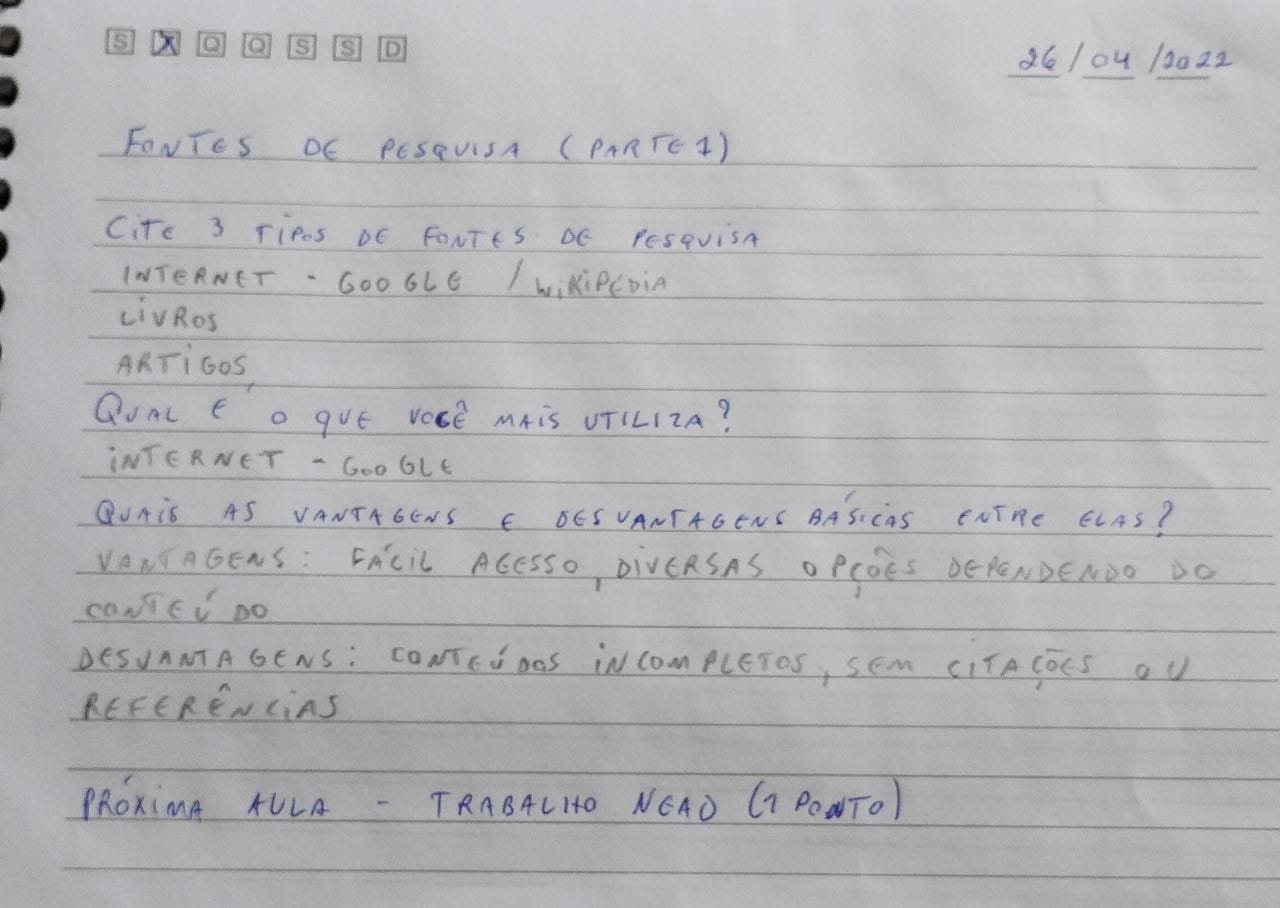 S X Q Q S S D
26/04/2022
FONTES DE PESQUISA (PARTE 1)
CITE 3 TIPOS DE FONTES DE PESQUISA
INTERNET - GOOGLE / WIKIPÉDIA
LIVROS
ARTIGOS
QUAL É O QUE VOCÊ MAIS UTILIZA?
INTERNET - GOOGLE
QUAIS AS VANTAGENS E DESVANTAGENS BÁSICAS ENTRE ELAS?
VANTAGENS: FÁCIL ACESSO, DIVERSAS OPÇÕES DEPENDENDO DO
CONTEÚDO
DESVANTAGENS: CONTEÚDOS INCOMPLETOS, SEM CITAÇÕES OU
REFERÊNCIAS
PRÓXIMA AULA - TRABALHO NEAD (1 PONTO)